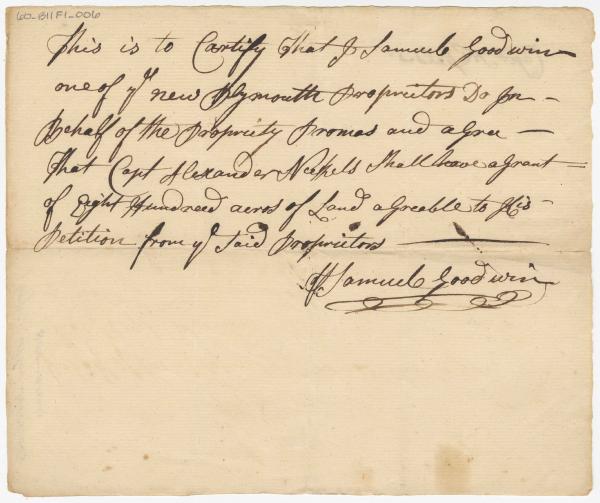 60-B11F1-006
This is to Cartify That I Samuel Goodwin
one of yᵉ new Plymouth Propriutors Do on
Behalf of the Propriety Promas and agree
That Capt Alexander Nickels Shall have a Grant
of Eight Hundred acros of Land agreable to His
Petition from yᵉ Said Propriutors
Samuel Goodwin